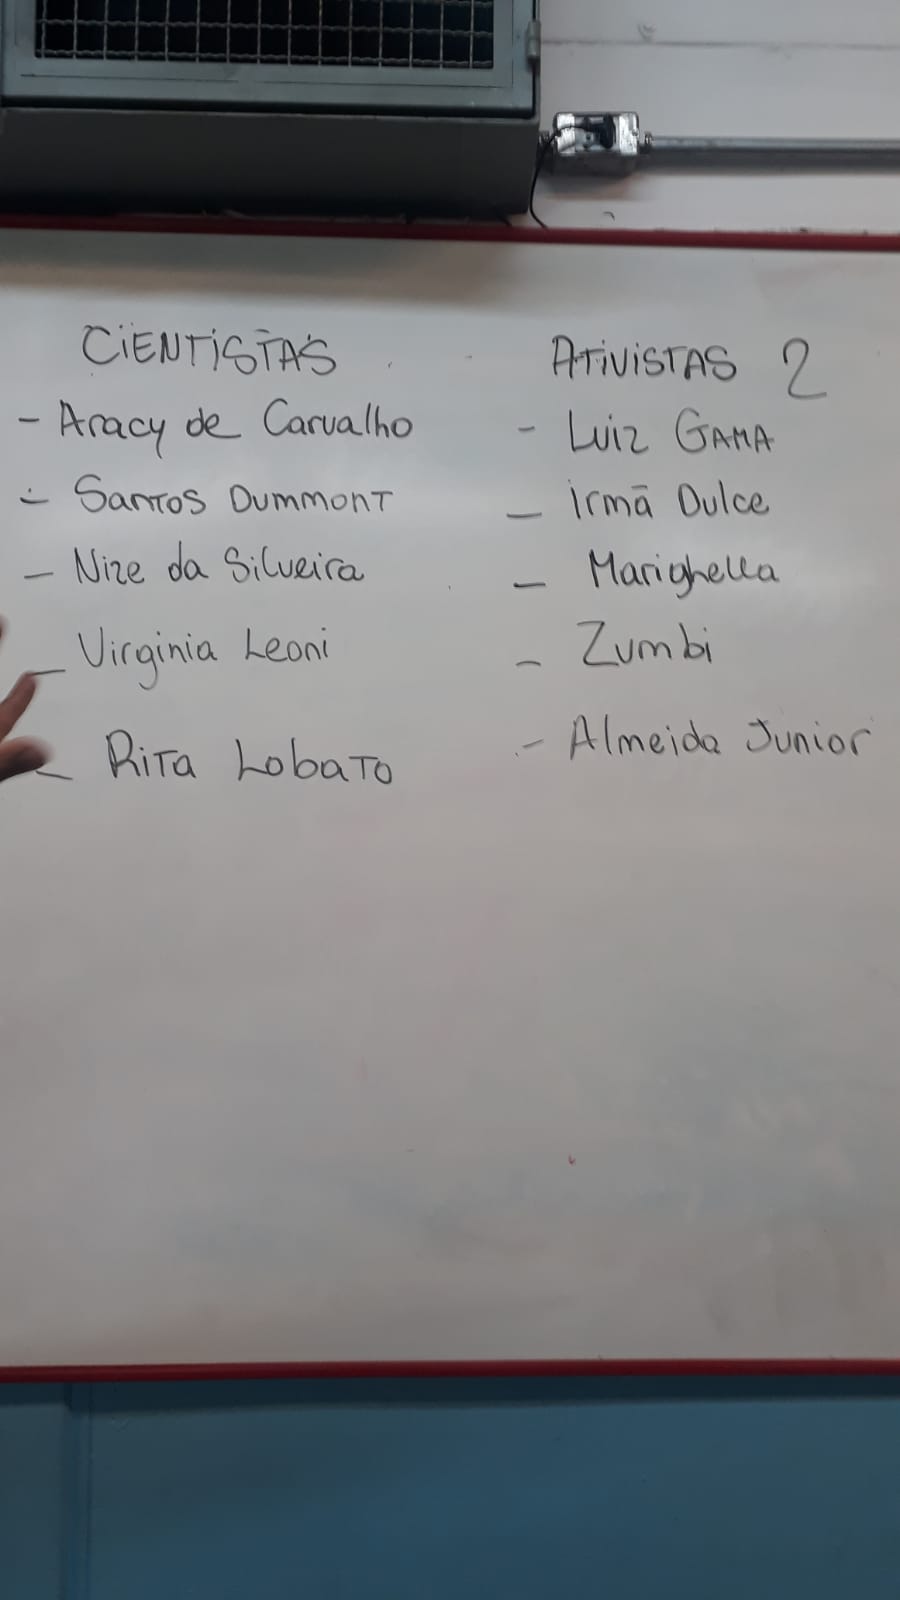 CIENTISTAS
- Aracy de Carvalho
- Santos Dummont
- Nize da Silveira
- Virginia Leoni
- Rita Lobato
ATIVISTAS 2
- Luiz Gama
- Irmã Dulce
- Marighella
- Zumbi
- Almeida Junior